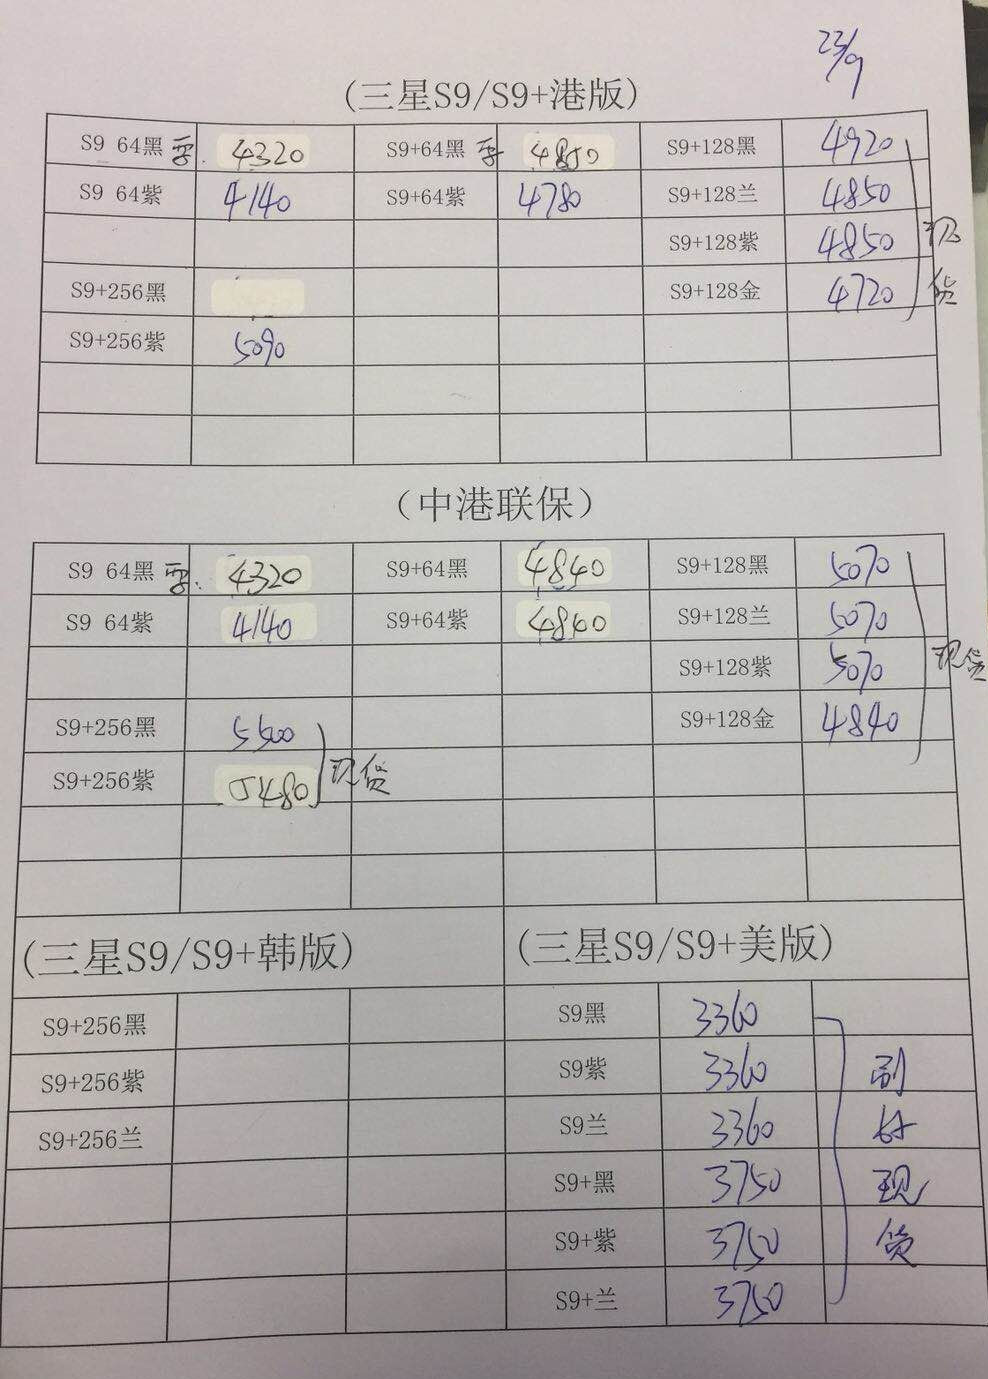 23/9
(三星S9/S9+港版)
S9 64黑 4320 S9+64黑 4850 S9+128黑 4920
S9 64紫 4140 S9+64紫 4780 S9+128兰 4850
S9+128紫 4850
S9+256黑 S9+128金 4720
S9+256紫 5090
现货
(中港联保)
S9 64黑 4320 S9+64黑 4840 S9+128黑 5070
S9 64紫 4140 S9+64紫 4840 S9+128兰 5070
S9+128紫 5070 现货
S9+256黑 5500 S9+128金 4840
S9+256紫 5480 现货
(三星S9/S9+韩版) (三星S9/S9+美版)
S9+256黑 S9黑 3360
S9+256紫 S9紫 3360 刷
S9+256兰 S9兰 3360 好
S9+黑 3750 现
S9+紫 3750 货
S9+兰 3750